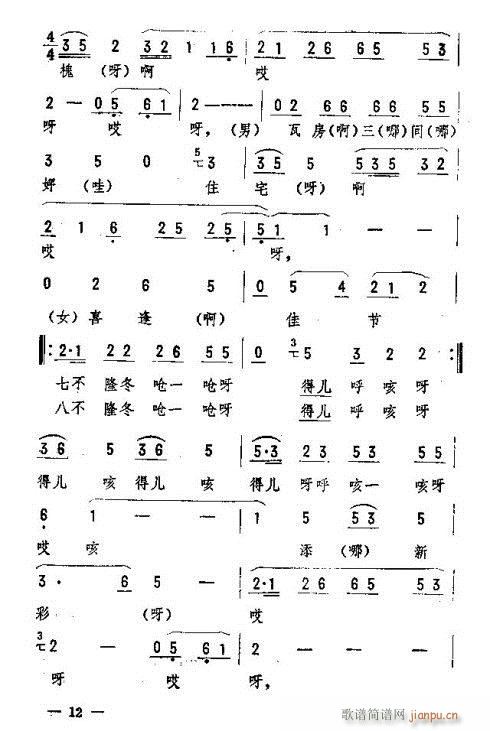 4/4 3 5 2 3 2 1 1 6 | 2 1 2 6 6 5 5 3
槐 (呀)啊 哎
2 — 0 5 6 1 | 2 — — — | 0 2 6 6 6 6 6 5
呀 哎 呀, (男) 瓦 房(啊)三(哪)间(哪)
3 5 0 3 | 3 5 5 5 3 5 3 2
好 (哇) 住 宅 (呀) 啊
2 1 6 2 5 2 5 | 5 1 1 — —
哎 呀,
0 2 6 5 | 0 5 4 2 1 2
(女) 喜 逢 (啊) 佳 节
2·1 2 2 2 6 5 5 | 0 5 3 2 2
七不 隆冬 呛一 呛呀 得儿 呼 咳呀
八不 隆冬 呛一 呛呀 得儿 呼 咳呀
3 6 5 3 6 5 | 5·3 2 3 5 5 3
得儿 咳 得儿 咳 得儿 呀呼 咳一 咳呀
6 1 — — | 1 5 5 3 5
哎 咳 添 (哪) 新
3· 6 5 — | 2·1 2 6 6 5 5 3
彩 (呀) 哎
2 — 0 5 6 1 | 2 — — —
呀 哎 呀,
— 12 —
歌谱简谱网
jianpu.cn